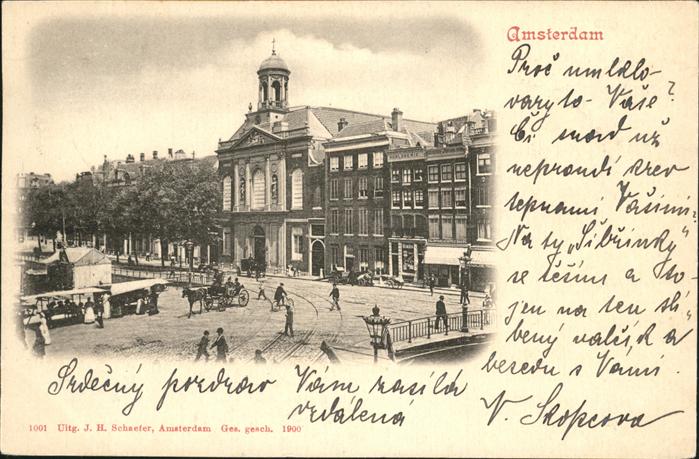 Amsterdam
Proč umlklo-
vary to- Vaše?
Či snad už
neproudí krev
tepnami Vašimi?
Na ty „Šibřinky"
se těším a to
jen na ten sli
bený valčík a
besedu s Vámi.
Srdečný pozdrav Vám zasílá
vzdálená V. Skopcova
1001 Uitg. J. H. Schaefer, Amsterdam Ges. gesch. 1900